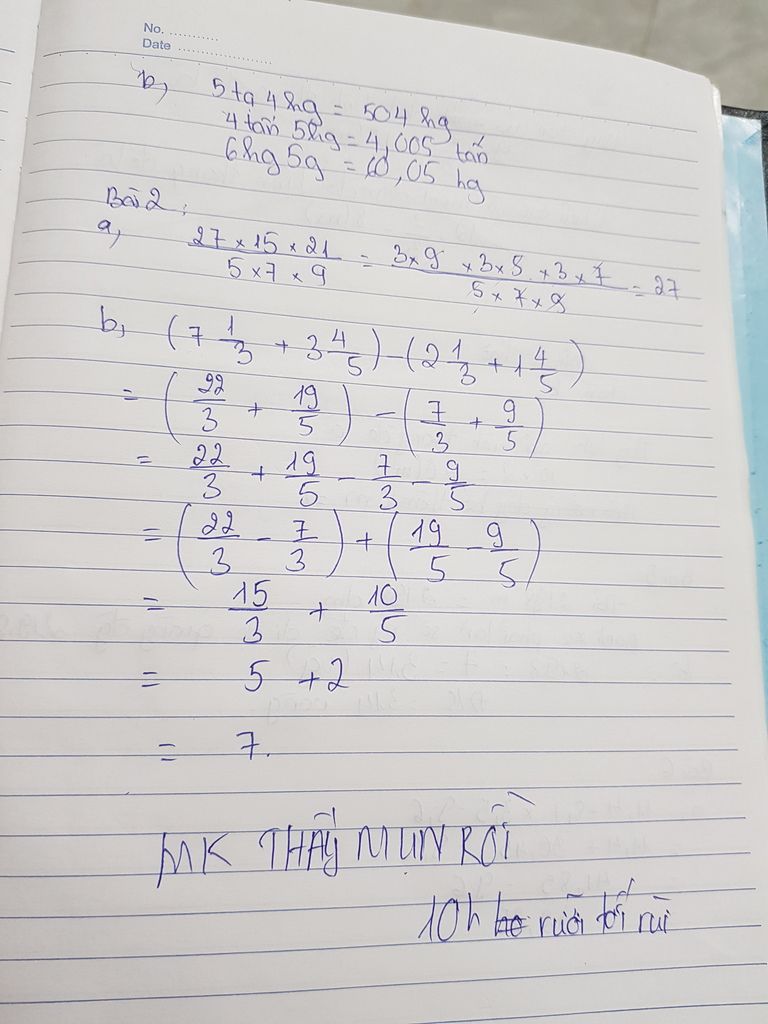 No. ...........
Date .....................
b, 5 tạ 4kg = 504 kg
4 tấn 5kg = 4,005 tấn
6kg 5g = 6,05 kg
Bài 2:
a, \frac{27 × 15 × 21}{5 × 7 × 9} = \frac{3 × 9 × 3 × 5 × 3 × 7}{5 × 7 × 9} = 27
b, (7\frac{1}{3} + 3\frac{4}{5}) - (2\frac{1}{3} + 1\frac{4}{5})
= (\frac{22}{3} + \frac{19}{5}) - (\frac{7}{3} + \frac{9}{5})
= \frac{22}{3} + \frac{19}{5} - \frac{7}{3} - \frac{9}{5}
= (\frac{22}{3} - \frac{7}{3}) + (\frac{19}{5} - \frac{9}{5})
= \frac{15}{3} + \frac{10}{5}
= 5 + 2
= 7.
MK THẤY MUN RỒI
10h ruỡi tối rùi